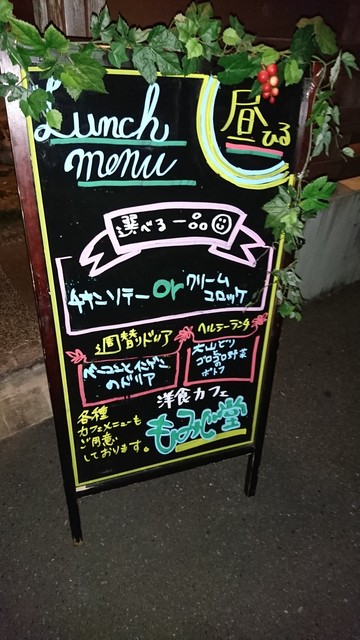 Lunch
menu
昼 ひる
選べる一品
チキンソテー or クリーム
コロッケ
週替りドリア
ベーコンと
のドリア
ヘルシーランチ
大山どり
ゴロゴロ野菜
の
ポトフ
洋食カフェ
もみじ堂
各種
カフェメニューも
ご用意
しております。